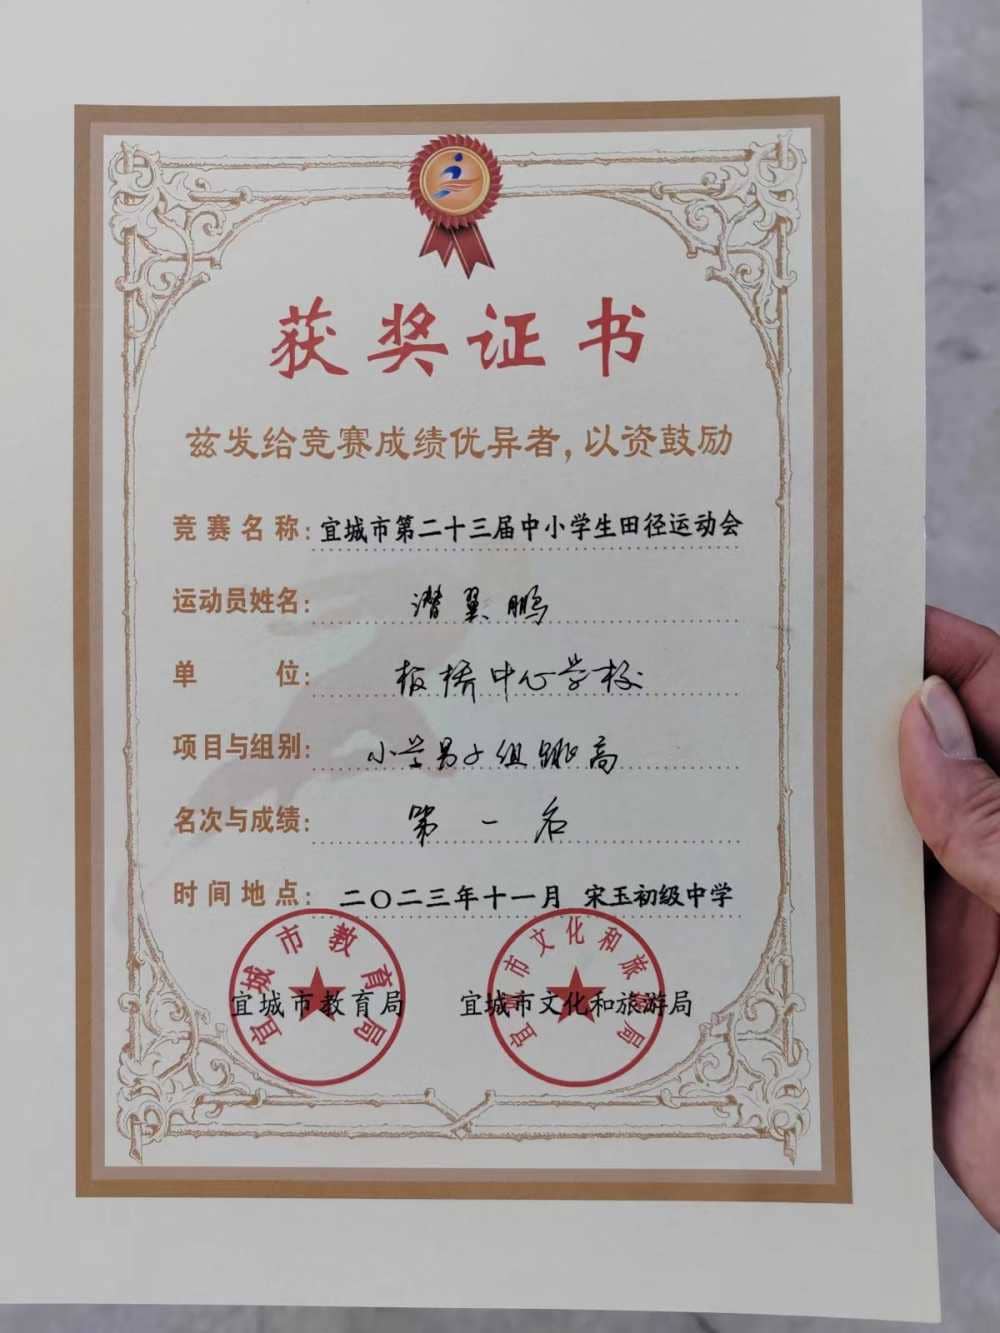 获奖证书
兹发给竞赛成绩优异者，以资鼓励
竞赛名称：宜城市第二十三届中小学生田径运动会
运动员姓名：潜翼鹏
单位：板桥中心学校
项目与组别：小学男子组跳高
名次与成绩：第一名
时间地点：二〇二三年十一月 宋玉初级中学
宜城市教育局
宜城市教育局 宜城市文化和旅游局
宜城市文化和旅游局